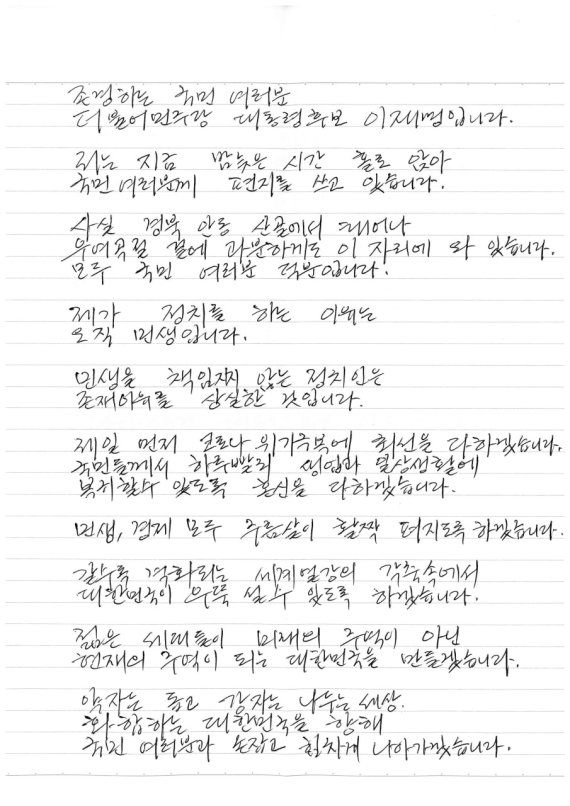 존경하는 국민 여러분
더불어민주당 대통령후보 이재명입니다.
저는 지금 밤늦은 시간 홀로 앉아
국민 여러분께 편지를 쓰고 있습니다.
사실 경북 안동 산골에서 태어나
우여곡절 끝에 과분하게도 이 자리에 와 있습니다.
모두 국민 여러분 덕분입니다.
제가 정치를 하는 이유는
오직 민생입니다.
민생을 책임지지 않는 정치인은
존재이유를 상실한 것입니다.
제일 먼저 코로나 위기극복에 최선을 다하겠습니다.
국민들께서 하루빨리 생업과 일상생활에
복귀할수 있도록 혼신을 다하겠습니다.
민생, 경제 모두 주름살이 활짝 펴지도록 하겠습니다.
갈수록 격화되는 세계열강의 각축속에서
대한민국이 우뚝 설수 있도록 하겠습니다.
젊은 세대들이 미래의 주역이 아닌
현재의 주역이 되는 대한민국을 만들겠습니다.
약자는 돕고 강자는 나누는 세상.
화합하는 대한민국을 향해
국민 여러분과 손잡고 힘차게 나아가겠습니다.